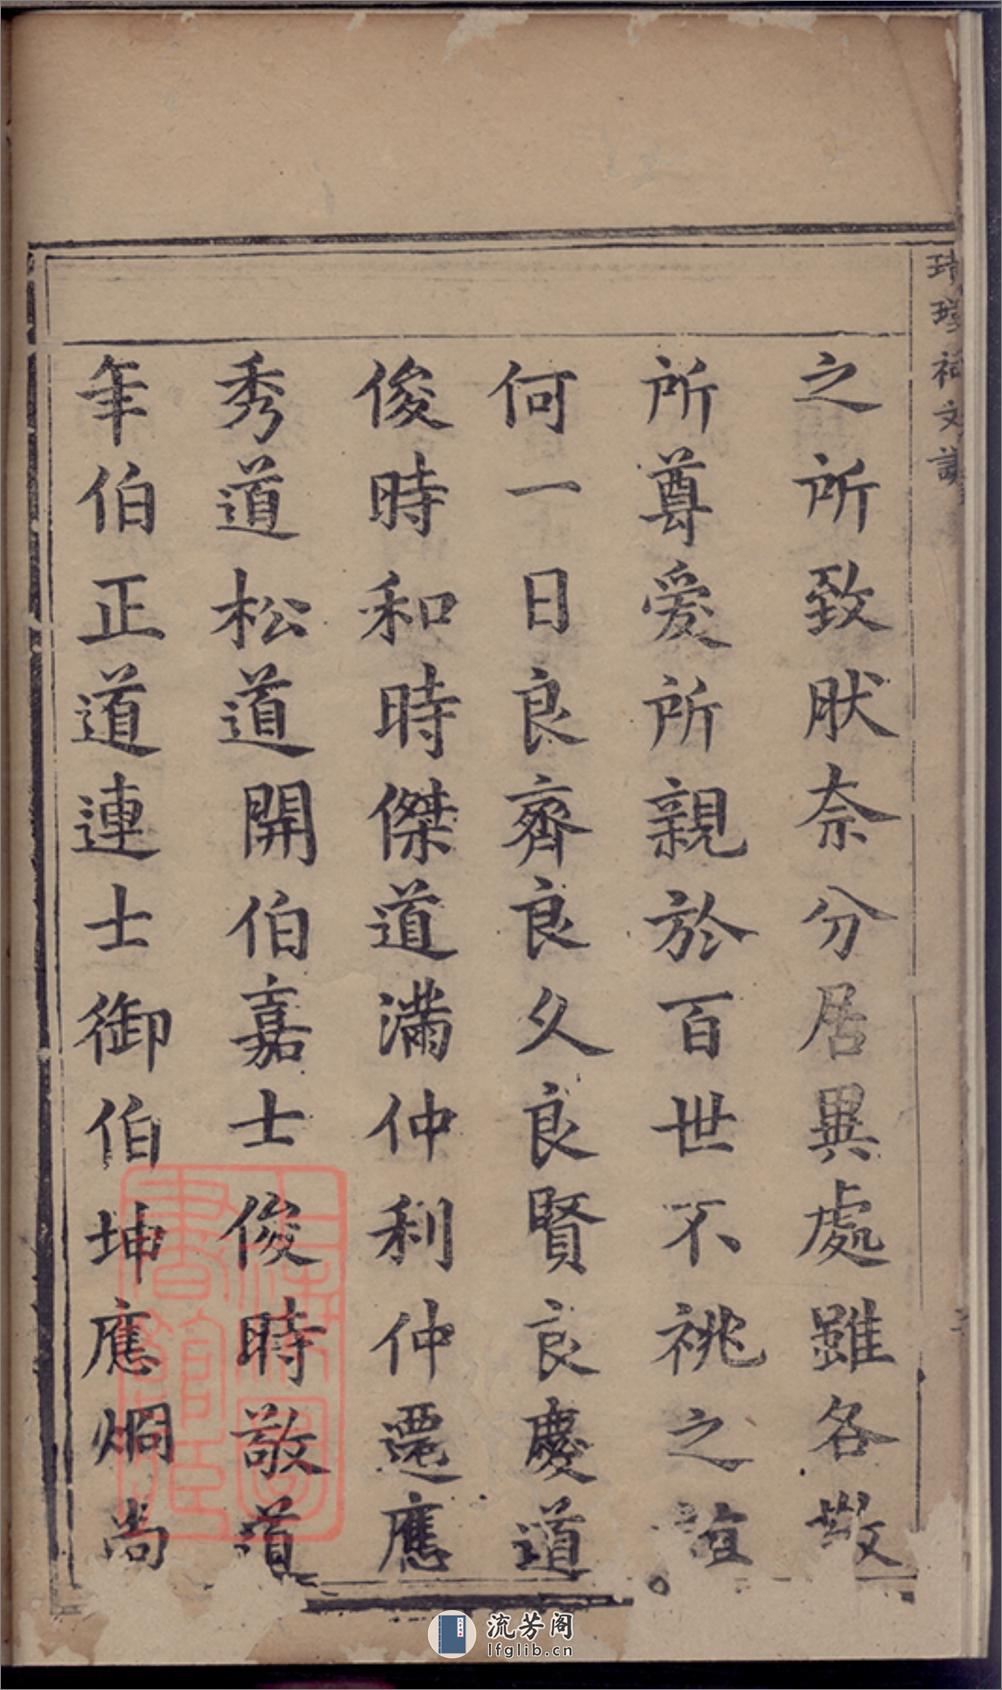 祠文
之所致肰奈分居異處雖各散
所尊爱所親於百世不祧之誼
何一日良齊良久良賢良慶道
俊時和時傑道滿仲利仲還應
秀道松道開伯嘉士俊時敬道
年伯正道連士御伯坤應炯尚
流芳阁
lfglib.cn